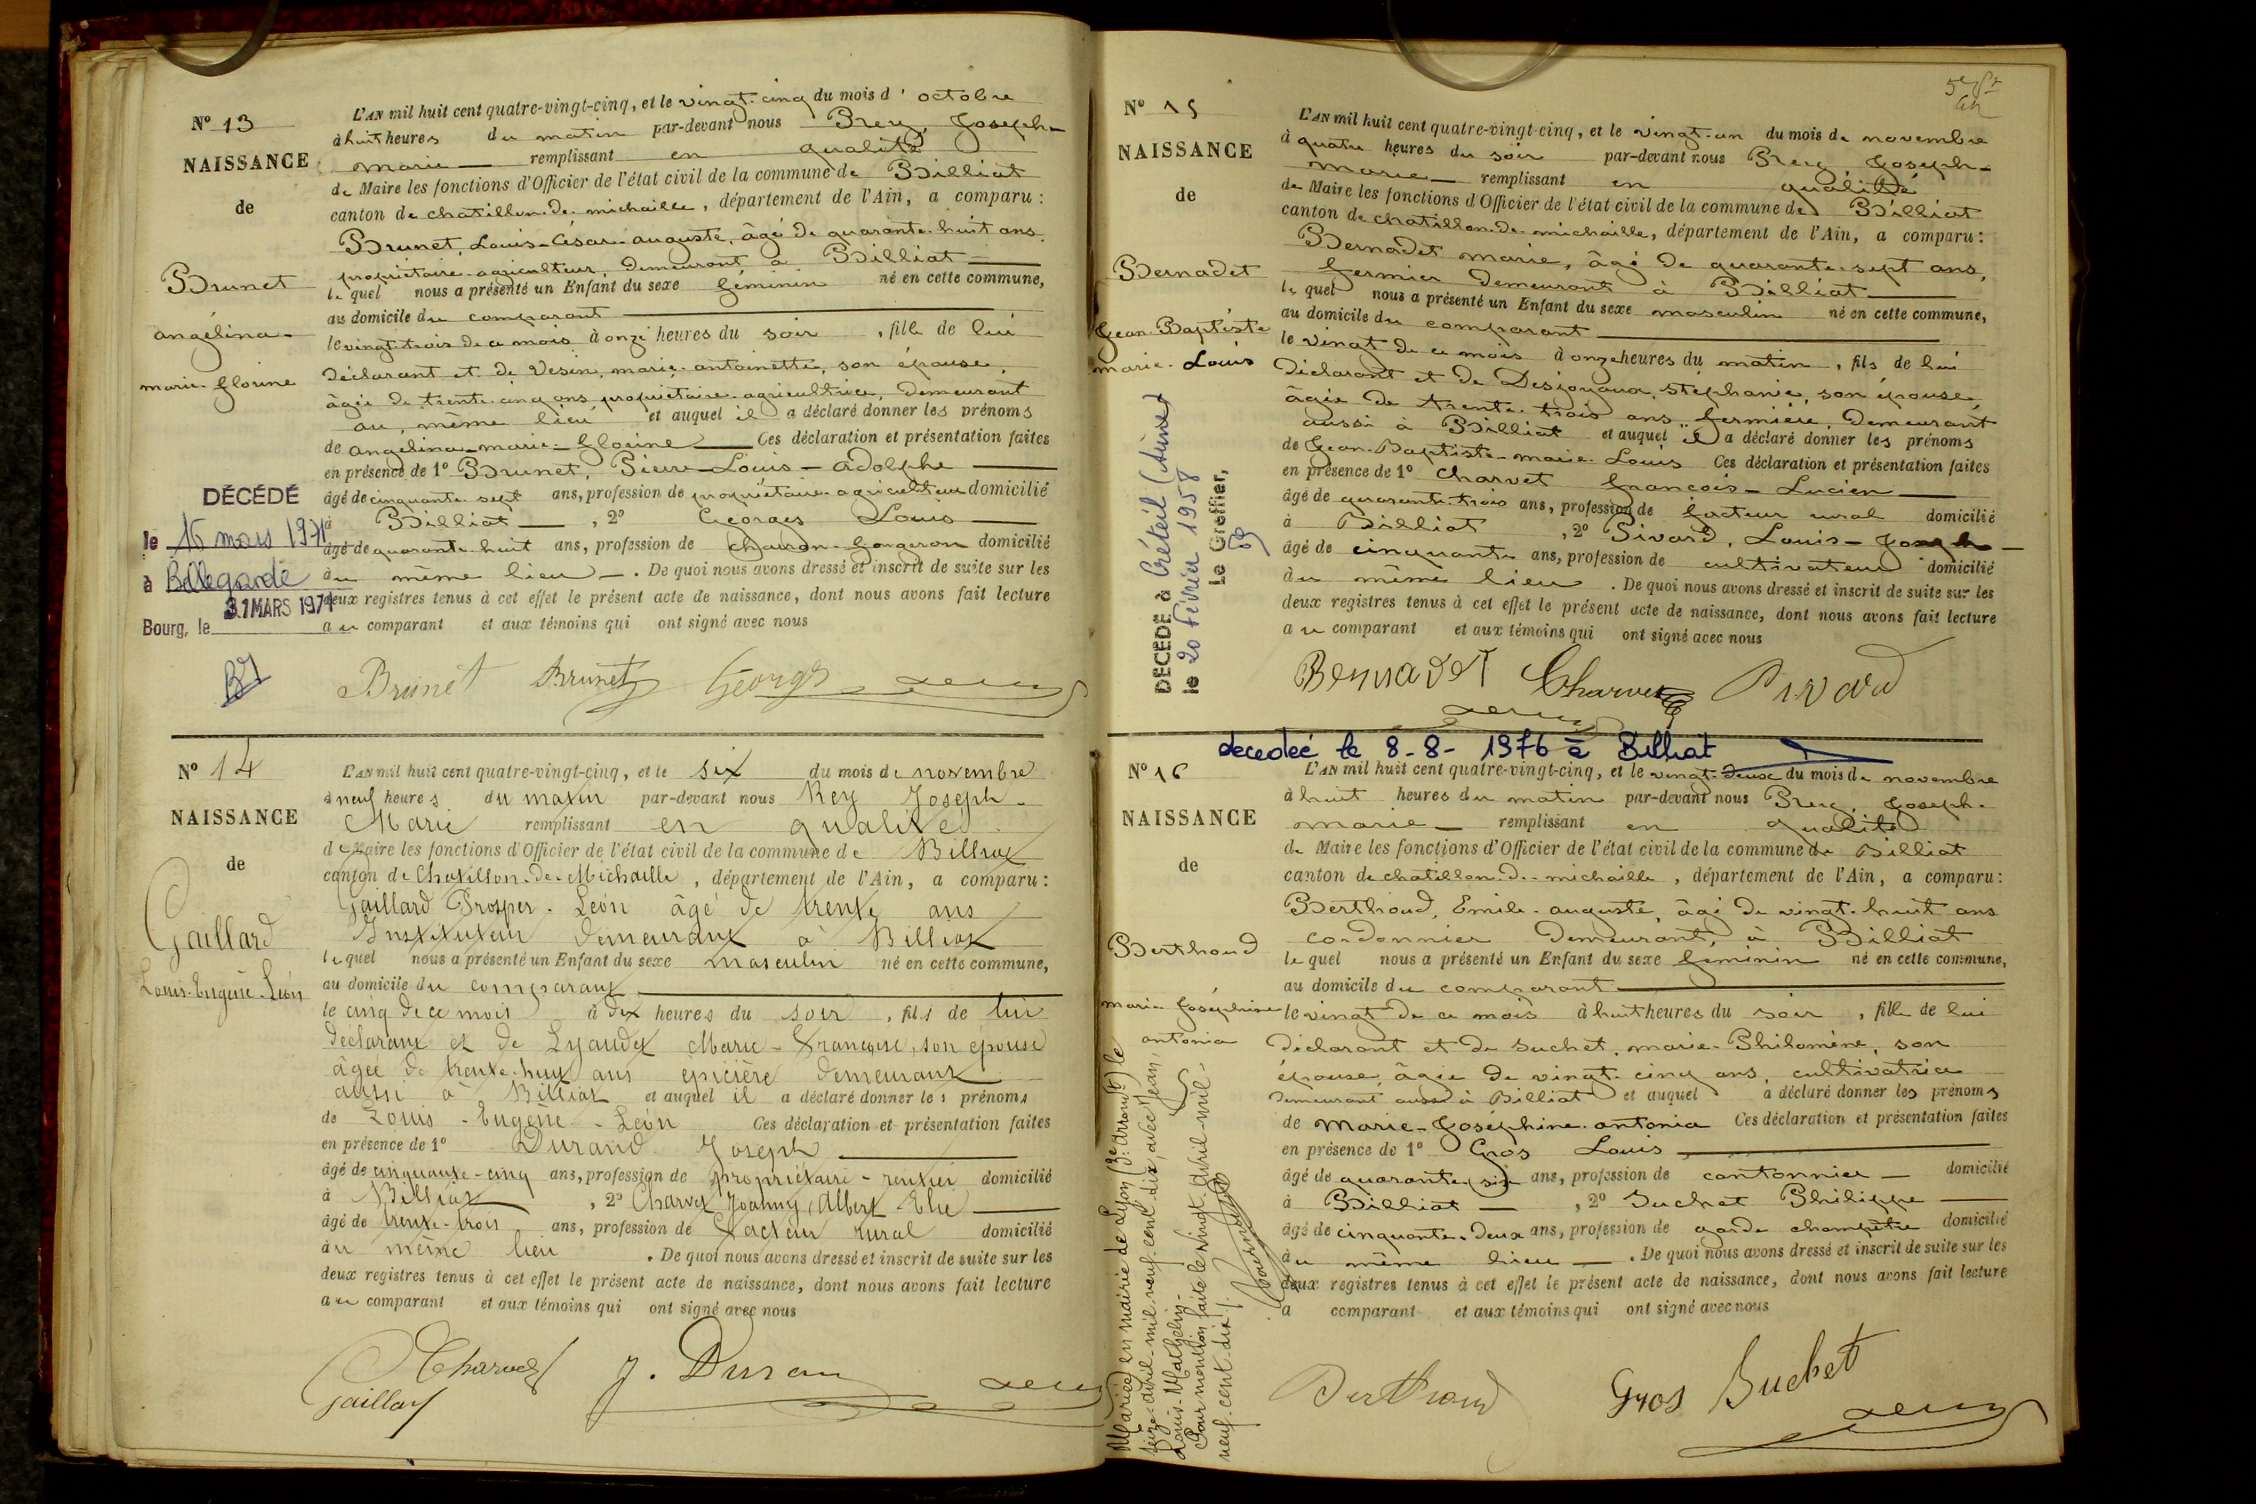 N° 13
NAISSANCE
de
Brunet
angélina
marie-florine
DÉCÉDÉ
le 16 mars 1971
à Bellegarde
31 MARS 1971
Bourg, le
L'AN mil huit cent quatre-vingt-cinq, et le vingt-cinq du mois d'octobre
à huit heures du matin par-devant nous Prey, Joseph-
marie remplissant en qualité
de Maire les fonctions d'Officier de l'état civil de la commune de Billiat
canton de chatillon-de-michaille, département de l'Ain, a comparu :
Brunet, Louis-César-auguste, âgé de quarante-huit ans,
propriétaire-agriculteur, demeurant à Billiat
lequel nous a présenté un Enfant du sexe féminin né en cette commune,
au domicile du comparant
le vingt-trois de ce mois à onze heures du soir, fille de lui
déclarant et de Vesin, marie-antoinette, son épouse,
âgée de trente-cinq ans propriétaire-agricultrice, demeurant
au même lieu et auquel il a déclaré donner les prénoms
de angélina-marie-florine Ces déclaration et présentation faites
en présence de 1° Brunet, Pierre-Louis-adolphe
âgé de cinquante-sept ans, profession de propriétaire-agriculteur domicilié
à Billiat, 2° Georges Louis
âgé de quarante-huit ans, profession de charron-forgeron domicilié
au même lieu. De quoi nous avons dressé et inscrit de suite sur les
deux registres tenus à cet effet le présent acte de naissance, dont nous avons fait lecture
au comparant et aux témoins qui ont signé avec nous
Brunet Brunet Georges
N° 14
NAISSANCE
de
Gaillard
Louis-Eugène-Léon
L'AN mil huit cent quatre-vingt-cinq, et le six du mois de novembre
à neuf heures du matin par-devant nous Rey Joseph-
Marie remplissant en qualité
de Maire les fonctions d'Officier de l'état civil de la commune de Billiat
canton de Chatillon-de-Michaille, département de l'Ain, a comparu :
Gaillard Prosper-Léon âgé de trente ans
Instituteur demeurant à Billiat
lequel nous a présenté un Enfant du sexe masculin né en cette commune,
au domicile du comparant
le cinq de ce mois à dix heures du soir, fils de lui
déclarant et de Lyaudet Marie-Françoise, son épouse
âgée de trente-huit ans épicière demeurant
aussi à Billiat et auquel il a déclaré donner les prénoms
de Louis-Eugène-Léon Ces déclaration et présentation faites
en présence de 1° Durand Joseph
âgé de cinquante-cinq ans, profession de propriétaire-rentier domicilié
à Billiat, 2° Charvet Joanny, Albert-Elie
âgé de trente-trois ans, profession de facteur rural domicilié
au même lieu. De quoi nous avons dressé et inscrit de suite sur les
deux registres tenus à cet effet le présent acte de naissance, dont nous avons fait lecture
au comparant et aux témoins qui ont signé avec nous
Charvet J. Duran
Gaillard
N° 15
NAISSANCE
de
Bernadet
Jean-Baptiste
marie-Louis
DÉCÉDÉ à Créteil (Seine)
le 20 Février 1958
Le Greffier,
L'AN mil huit cent quatre-vingt-cinq, et le vingt-un du mois de novembre
à quatre heures du soir par-devant nous Prey Joseph-
marie remplissant en qualité
de Maire les fonctions d'Officier de l'état civil de la commune de Billiat
canton de chatillon-de-michaille, département de l'Ain, a comparu :
Bernadet marie, âgé de quarante-sept ans,
fermier demeurant à Billiat
lequel nous a présenté un Enfant du sexe masculin né en cette commune,
au domicile du comparant
le vingt de ce mois à onze heures du matin, fils de lui
déclarant et de Desjoyaux, stéphanie, son épouse,
âgée de trente-trois ans, fermière, demeurant
aussi à Billiat et auquel il a déclaré donner les prénoms
de Jean-Baptiste-marie-Louis Ces déclaration et présentation faites
en présence de 1° Charvet françois-Lucien
âgé de quarante-trois ans, profession de facteur rural domicilié
à Billiat, 2° Pivard, Louis-Joseph
âgé de cinquante ans, profession de cultivateur domicilié
au même lieu. De quoi nous avons dressé et inscrit de suite sur les
deux registres tenus à cet effet le présent acte de naissance, dont nous avons fait lecture
au comparant et aux témoins qui ont signé avec nous
Bernadet Charvet Pivard
decedeé le 8-8-1976 à Billiat
N° 16
NAISSANCE
de
Berthoud
marie-Joséphine
antonia
Mariée en mairie de Lyon (3e arrondt) le
seize avril mil neuf cent dix, avec Jean,
Louis-Mathelin-
Pour mention faite le vingt avril-mil-
neuf-cent-dix/.
L'AN mil huit cent quatre-vingt-cinq, et le vingt-deux du mois de novembre
à huit heures du matin par-devant nous Prey, Joseph-
marie remplissant en qualité
de Maire les fonctions d'Officier de l'état civil de la commune de Billiat
canton de chatillon-de-michaille, département de l'Ain, a comparu :
Berthoud, Emile-auguste, âgé de vingt-huit ans
cordonnier demeurant, à Billiat
lequel nous a présenté un Enfant du sexe féminin né en cette commune,
au domicile du comparant
le vingt de ce mois à huit heures du soir, fille de lui
déclarant et de Suchet, marie-Philomène, son
épouse, âgée de vingt-cinq ans, cultivatrice
demeurant aussi à Billiat et auquel a déclaré donner les prénoms
de Marie-Joséphine-antonia Ces déclaration et présentation faites
en présence de 1° Gros Louis
âgé de quarante-six ans, profession de cantonnier domicilié
à Billiat, 2° Suchet Philippe
âgé de cinquante-deux ans, profession de garde champêtre domicilié
au même lieu. De quoi nous avons dressé et inscrit de suite sur les
deux registres tenus à cet effet le présent acte de naissance, dont nous avons fait lecture
a comparant et aux témoins qui ont signé avec nous
Berthoud Gros Suchet